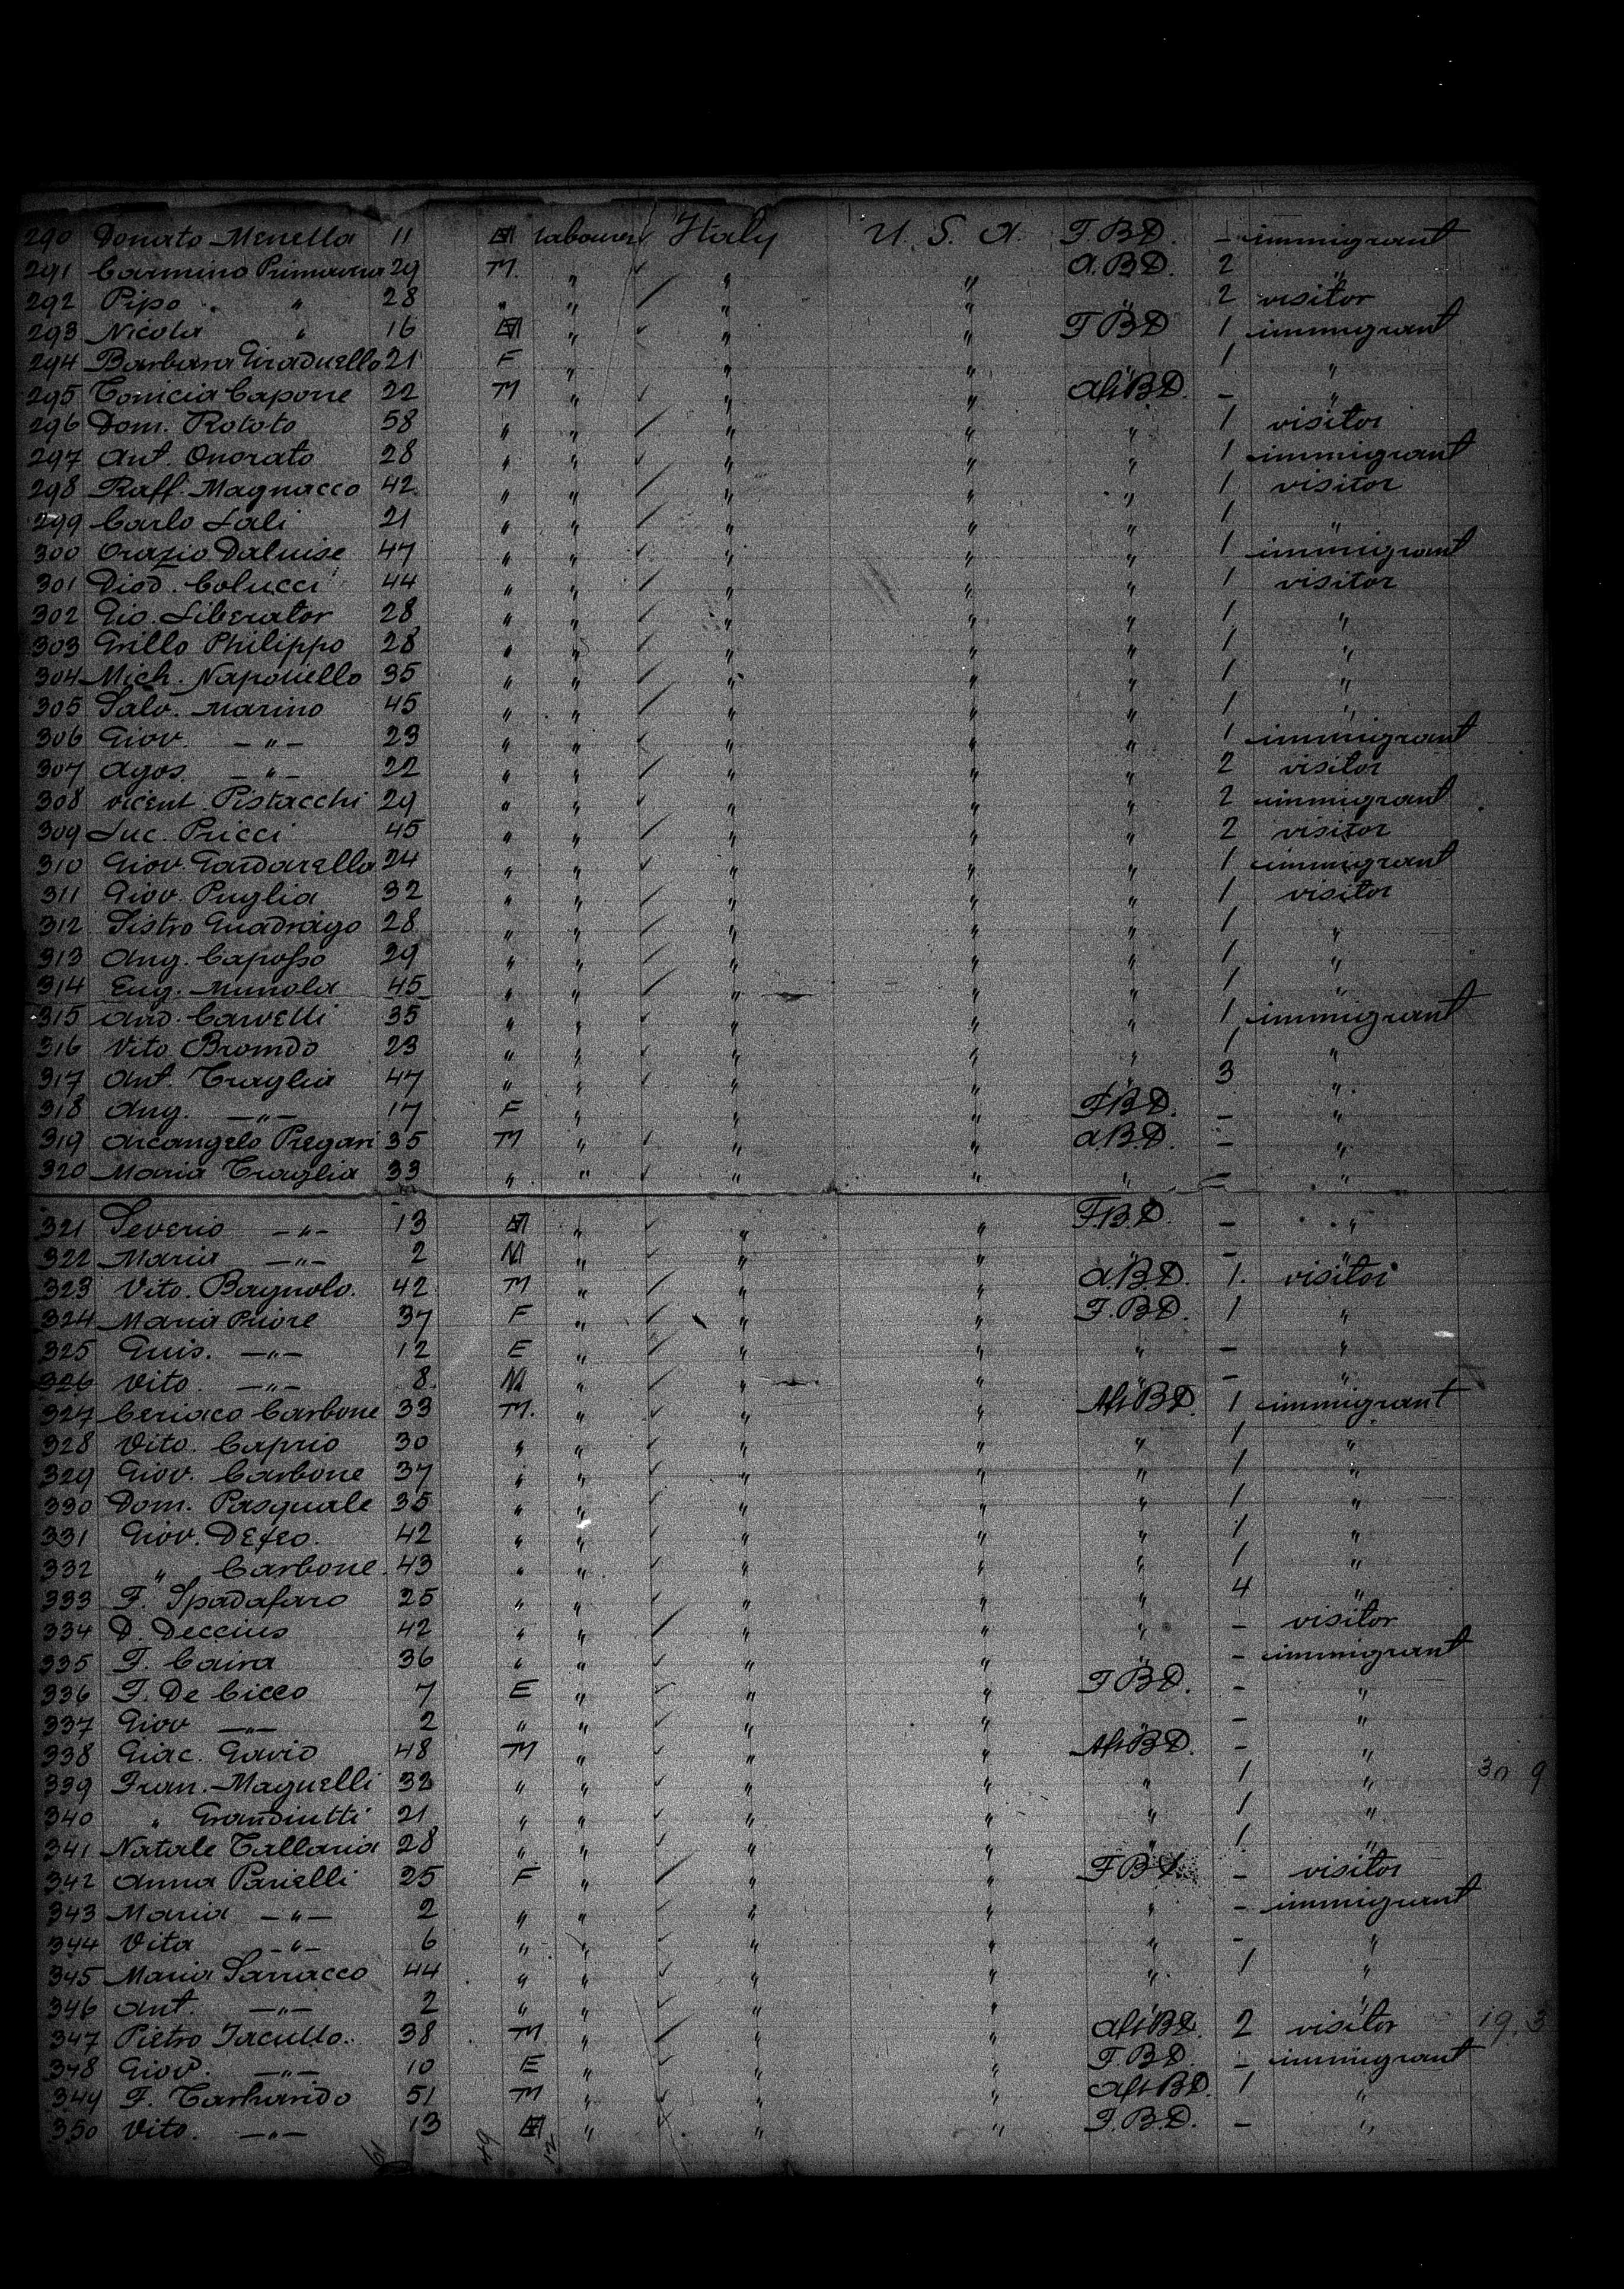 290 Donato Menella 11 labourer Italy U. S. A. F.B.D. - immigrant
291 Carmino Primavera 29 M. " " " A.B.D. 2 "
292 Pipo " 28 " " " " " 2 visitor
293 Nicola " 16 " " " F.B.D 1 immigrant
294 Barbara Graduello 21 F " " " " 1 "
295 Conicia Capone 22 M " " " Aft B.D. - "
296 Dom. Rototo 58 " " " " " 1 visitor
297 Ant. Onorato 28 " " " " " 1 immigrant
298 Raff. Magnacco 42 " " " " " 1 visitor
299 Carlo Lali 21 " " " " " 1 "
300 Orazio Daluise 47 " " " " " 1 immigrant
301 Diod. Colucci 44 " " " " " 1 visitor
302 Gio. Liberator 28 " " " " " 1 "
303 Grillo Philippo 28 " " " " " 1 "
304 Mich. Naponiello 35 " " " " " 1 "
305 Salv. Marino 45 " " " " " 1 "
306 Giov. -"- 23 " " " " " 1 immigrant
307 Agos. -"- 22 " " " " " 2 visitor
308 Vicent Pistacchi 29 " " " " " 2 immigrant
309 Luc. Pricci 45 " " " " " 2 visitor
310 Giov. Gardarella 24 " " " " " 1 immigrant
311 Giov. Puglia 32 " " " " " 1 visitor
312 Sistro Guadrago 28 " " " " " 1 "
313 Ang. Caposso 29 " " " " " 1 "
314 Eug. Munola 45 " " " " " 1 "
315 And. Carvelli 35 " " " " " 1 immigrant
316 Vito Bromdo 23 " " " " " 1 "
317 Ant. Traglia 47 " " " " " 3 "
318 Ang. -"- 17 F " " " F.B.D. - "
319 Arcangelo Pregari 35 M " " " A.B.D. - "
320 Maria Traglia 33 " " " " " - "
321 Severio -"- 13 " " " F.B.D. - "
322 Maria -"- 2 M " " " " - "
323 Vito. Bagnolo. 42 M " " " A.B.D. 1. visitor
324 Maria Priore 37 F " " " F.B.D. 1 "
325 Guis. -"- 12 E " " " " - "
326 Vito. -"- 8 M " " " " - "
327 Ceriaco Carbone 33 M. " " " Aft B.D. 1 immigrant
328 Vito. Caprio 30 " " " " " 1 "
329 Giov. Carbone 37 " " " " " 1 "
330 Dom. Pasquale 35 " " " " " 1 "
331 Giov. Defeo. 42 " " " " " 1 "
332 " Carbone. 43 " " " " " 1 "
333 F. Spadafaro 25 " " " " " 4 "
334 D. Deccius 42 " " " " " - visitor
335 F. Caira 36 " " " " " - immigrant
336 F. De Cicco 7 E " " " F.B.D. - "
337 Giov -"- 2 " " " " " - "
338 Giac. Gavio 48 M " " " Aft B.D. - "
339 Fran. Magnelli 32 " " " " " 1 " 30 9
340 " Grandiutti 21 " " " " " 1 "
341 Natale Tallaria 28 " " " " " 1 "
342 Anna Parielli 25 F " " " F.B.D. - visitor
343 Maria -"- 2 " " " " " - immigrant
344 Vita -"- 6 " " " " " - "
345 Maria Sarracco 44 " " " " " 1 "
346 Ant. -"- 2 " " " " "
347 Pietro Iacullo. 38 M " " " Aft B.D. 2 visitor 19. 3
348 Giov. -"- 10 E " " " F.B.D. - immigrant
349 F. Carhando 51 M " " " Aft B.D. 1 "
350 Vito. -"- 13 " " " F.B.D. - "